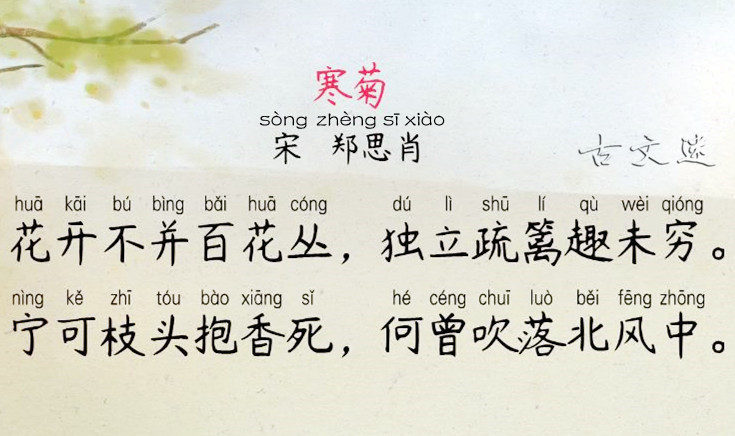 寒菊
sòng zhèng sī xiào
宋 郑思肖
古文迷
huā kāi bú bìng bǎi huā cóng dú lì shū lí qù wèi qióng
花开不并百花丛，独立疏篱趣未穷。
nìng kě zhī tóu bào xiāng sǐ hé céng chuī luò běi fēng zhōng
宁可枝头抱香死，何曾吹落北风中。